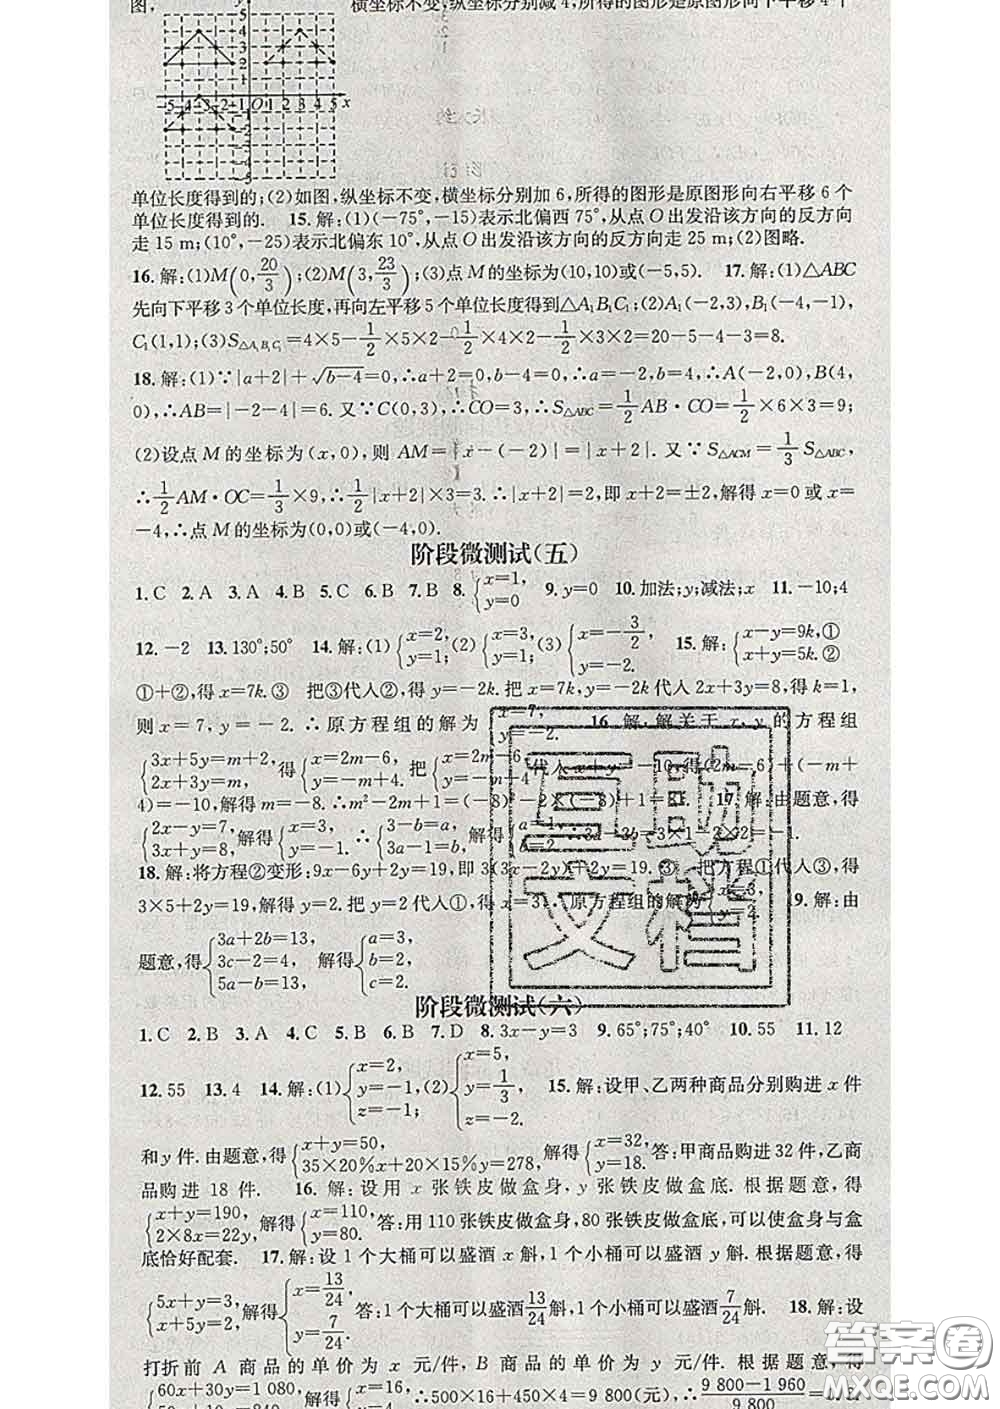 图，横坐标不变,纵坐标分别减4,所得的图形是原图形向下平移4个
单位长度得到的;(2)如图,纵坐标不变,横坐标分别加6,所得的图形是原图形向右平移6个
单位长度得到的. 15.解:(1)(-75°,-15)表示北偏西75°,从点O出发沿该方向的反方向
走15 m;(10°,-25)表示北偏东10°,从点O出发沿该方向的反方向走25 m;(2)图略.
16.解:(1)M(0,20/3);(2)M(3,23/3);(3)点M的坐标为(10,10)或(-5,5). 17.解:(1)△ABC
先向下平移3个单位长度,再向左平移5个单位长度得到△A₁B₁C₁;(2)A₁(-2,3),B₁(-4,-1),
C₁(1,1);(3)S△A₁B₁C₁=4×5-1/2×5×2-1/2×4×2-1/2×3×2=20-5-4-3=8.
18.解:(1)∵|a+2|+√(b-4)=0,∴a+2=0,b-4=0,∴a=-2,b=4,∴A(-2,0),B(4,
0),∴AB=|-2-4|=6.又∵C(0,3),∴CO=3,∴S△ABC=1/2 AB·CO=1/2×6×3=9;
(2)设点M的坐标为(x,0),则AM=|x-(-2)|=|x+2|.又∵S△ACM=1/3 S△ABC,
∴1/2 AM·OC=1/3×9,∴1/2|x+2|×3=3.∴|x+2|=2,即x+2=±2,解得x=0或x=
-4,∴点M的坐标为(0,0)或(-4,0).
阶段微测试(五)
1.C 2.A 3.A 4.B 5.C 6.B 7.B 8.{x=1, y=0 9.y=0 10.加法;y;减法;x 11.-10;4
12.-2 13.130°;50° 14.解:(1){x=2, y=1; (2){x=3, y=1; (3){x=-3/2, y=-2. 15.解:{x-y=9k,① x+y=5k.②
①+②,得x=7k.③ 把③代入②,得y=-2k.把x=7k,y=-2k代入2x+3y=8,得k=1,
则x=7,y=-2.∴原方程组的解为{x=7, y=-2. 16.解:解关于x,y的方程组
{3x+5y=m+2, 2x+3y=m 得{x=2m-6, y=-m+4. 把{x=2m-6, y=-m+4代入x+y=-10,得(2m-6)+(-m+
4)=-10,解得m=-8.∴m²-2m+1=(-8)²-2×(-8)+1=81. 17.解:由题意,得
{2x-y=7, x+y=4, 解得{x=3, y=-1. ∴{3-b=a, 3a-1=b, 解得{a=1, b=2. ∴3a-2b=3×1-2×2=-1.
18.解:将方程②变形:9x-6y+2y=19,即3(3x-2y)+2y=19.③ 把方程①代入③,得
3×5+2y=19,解得y=2.把y=2代入①,得x=3,∴原方程组的解为{x=3, y=2. 19.解:由
题意,得{3a+2b=13, 3c-2=4, 5a-b=13, 解得{a=3, b=2, c=2.
阶段微测试(六)
1.C 2.B 3.A 4.C 5.B 6.B 7.D 8.3x-y=3 9.65°;75°;40° 10.55 11.12
12.55 13.4 14.解:(1){x=2, y=-1, z=-1; (2){x=5, y=1/3, z=-2. 15.解:设甲、乙两种商品分别购进x件
和y件.由题意,得{x+y=50, 35×20%x+20×15%y=278, 解得{x=32, y=18. 答:甲商品购进32件,乙商
品购进18件. 16.解:设用x张铁皮做盒身,y张铁皮做盒底.根据题意,得
{x+y=190, 2×8x=22y, 解得{x=110, y=80. 答:用110张铁皮做盒身,80张铁皮做盒底,可以使盒身与盒
底恰好配套. 17.解:设1个大桶可以盛酒x斛,1个小桶可以盛酒y斛.根据题意,得
{5x+y=3, x+5y=2, 解得{x=13/24, y=7/24. 答:1个大桶可以盛酒13/24斛,1个小桶可以盛酒7/24斛. 18.解:设
打折前A商品的单价为x元/件,B商品的单价为y元/件.根据题意,得
{60x+30y=1 080, 解得{x=16, ∴500×16+450×4=9 800(元),∴(9 800-1 960)/9 800=
互助文档
答案圈
MXQE.COM